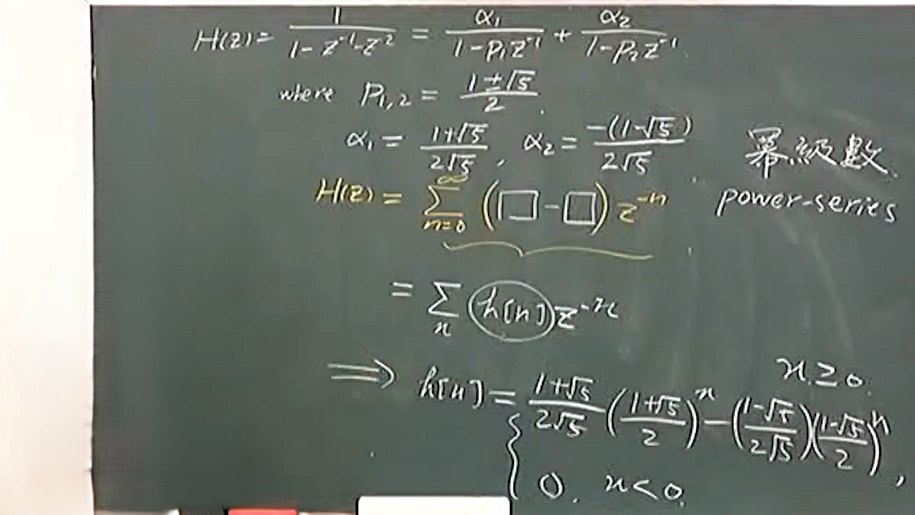 H(z) = 1/(1 - z⁻¹ - z⁻²) = α₁/(1 - p₁z⁻¹) + α₂/(1 - p₂z⁻¹)
where P₁,₂ = (1±√5)/2.
α₁ = (1+√5)/(2√5), α₂ = -(1-√5)/(2√5)
冪級數
power-series
H(z) = ∑_{n=0}^{∞} (□ - □) z⁻ⁿ
= ∑_n h[n] z⁻ⁿ
⟹ h[n] = { (1+√5)/(2√5) ((1+√5)/2)ⁿ - ((1-√5)/(2√5))((1-√5)/2)ⁿ, n ≥ 0.
0. n < 0.